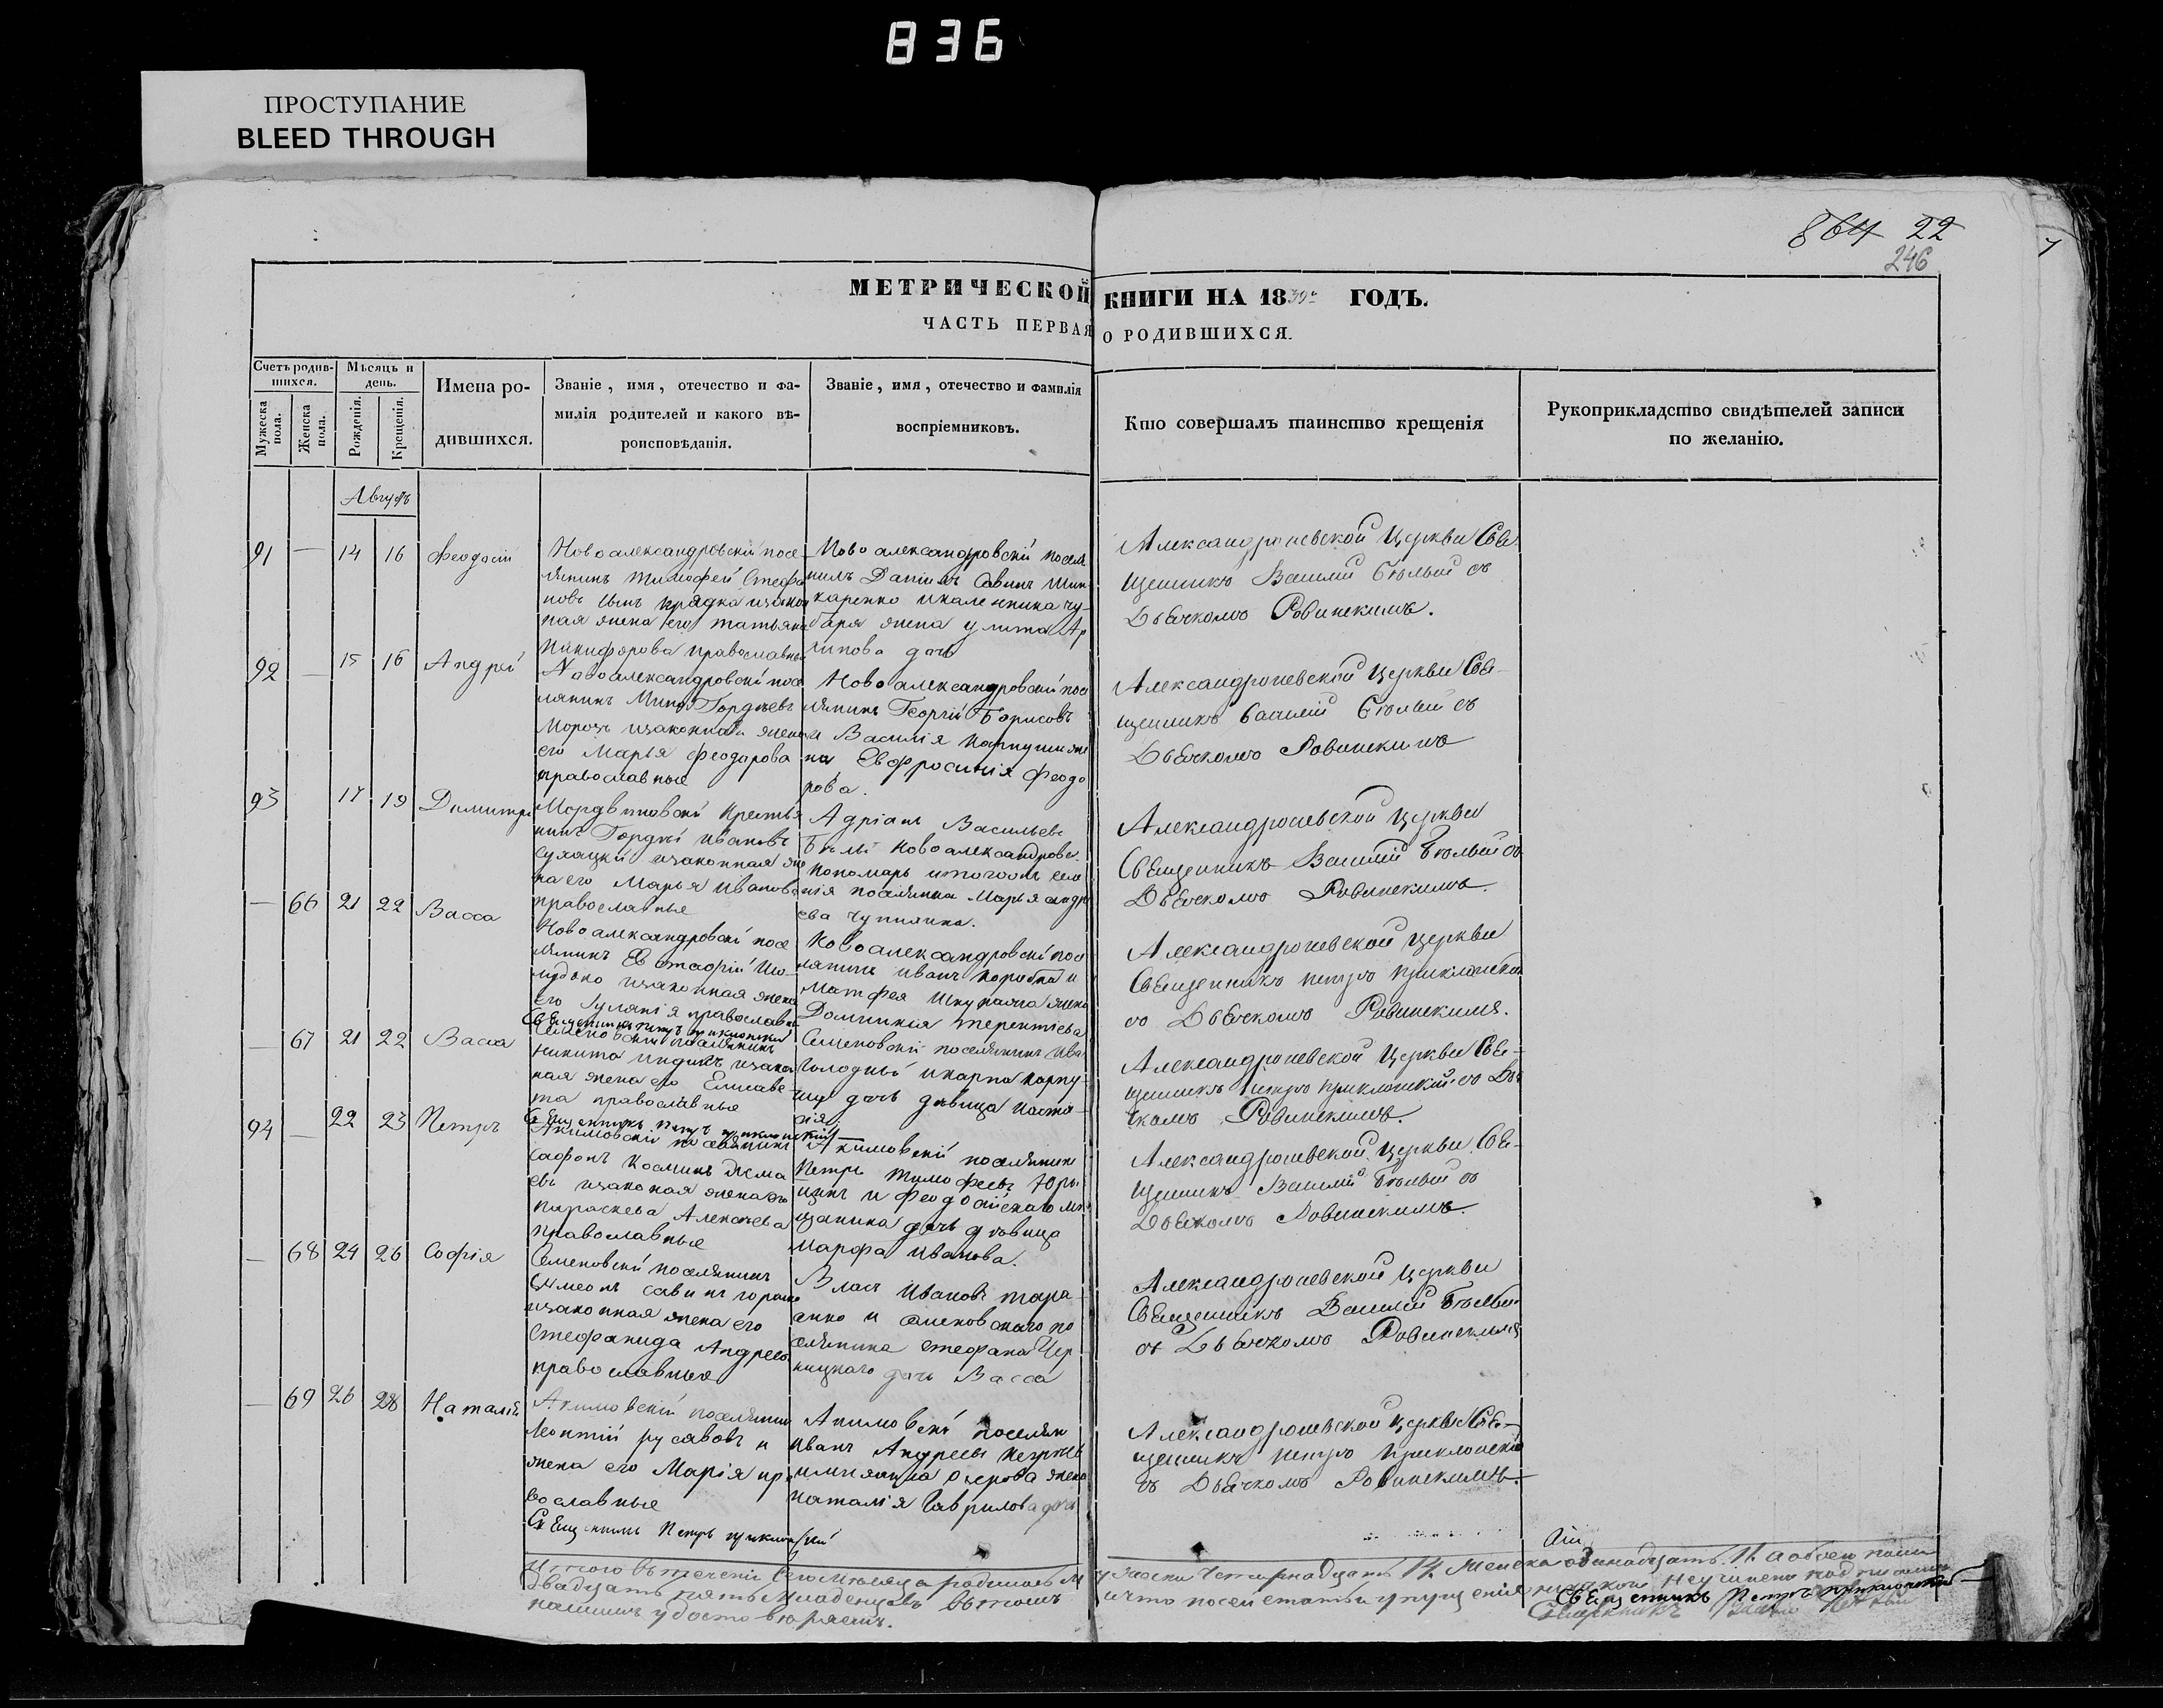 836
ПРОСТУПАНИЕ
BLEED THROUGH
864 22
246
МЕТРИЧЕСКОЙ КНИГИ НА 1839й ГОДЪ.
ЧАСТЬ ПЕРВАЯ О РОДИВШИХСЯ.
Счетъ родив-
шихся.
Мужеска пола.
Женска пола.
Мѣсяцъ и
день.
Рожденія.
Крещенія.
Имена ро-
дившихся.
Званіе, имя, отечество и фа-
милія родителей и какого вѣ-
роисповѣданія.
Званіе, имя, отечество и фамилія
воспріемниковъ.
Кто совершалъ таинство крещенія
Рукоприкладство свидѣтелей записи
по желанію.
Августъ
91 — 14 16 Феодосій
Новоалександровскій посе
лянинъ Тимофей Стефа
новъ сынъ Прядка изакон
ная жена его Татьяна
Никифорова православные
Новоалександровскій поселя
нинъ Даніилъ Савинъ Шин
каренко
жена Улита Ар
хипова дочь
Александроневской Церкви Свя
щенникъ Василій Бѣлый съ
Дьячкомъ Ровинскимъ.
92 — 15 16 Андрей
Новоалександровскій посе
лянинъ Мина Гордѣевъ
Морозъ изаконная жена
его Марья Феодорова
православные
Новоалександровскій посе
лянинъ Георгій Борисовъ
и Василія Карпуши же
на Евфросинія Феодо
рова.
Александроневской Церкви Свя-
щенникъ Василій Бѣлый съ
Дьячкомъ Ровинскимъ
93 17 19 Димитрій
Мордвиновскій Крестья
нинъ Гордѣй Ивановъ
Сухацкій изаконная же
на его Марья Иванова
православные
Адріанъ Васильевъ
Бѣлый Новоалександровск.
пономарь итогожъ селе
нія поселянка Марья Андре
ева
Александроневской Церкви
Священникъ Василій Бѣлый съ
Дьячкомъ Ровинскимъ.
— 66 21 22 Васса
Новоалександровскій посе
лянинъ Евстафій
изаконная жена
его Іуліанія православн
Священникъ Петръ Приклонскій
Новоалександровскій посе
лянинъ Иванъ Коробка и
Матфея жена
Домникія Терентіева
Александроневской Церкви
Священникъ Петръ Приклонскій
съ Дьячкомъ Ровинскимъ.
— 67 21 22 Васса
Семеновскій поселянинъ
Никита Индикъ изакон
ная жена его Елисаве-
та православные
Священникъ Петръ Приклонскій
Семеновскій поселянинъ Иван
Голодный икарпа Карпу-
ши дочь дѣвица Наста
сія
Александроневской Церкви Свя-
щенникъ Петръ Приклонскій со Дья
чкомъ Ровинскимъ.
94 — 22 23 Петръ
Акимовскій поселянинъ
Сафонъ Косминъ Дема
евъ изаконая жена его
Параскева Алексеева
православные
Акимовскій поселянинъ
Петръ Тимофеевъ Юри
цинъ и Феодосійскаго мѣ
щанина дочь дѣвица
Марфа Иванова.
Александроневской Церкви Свя-
щенникъ Василій Бѣлый съ
Дьячкомъ Ровинскимъ.
— 68 24 26 Софія
Семеновскій поселянинъ
Симеонъ Савинъ
изаконная жена его
Стефанида Андреев
православные
Власъ Ивановъ Тара-
анко и Семеновскаго по
селянина Стефана Чер
ницкаго дочь Васса
Александроневской Церкви
Священникъ Василій Бѣлый
съ Дьячкомъ Ровинскимъ
— 69 26 28 Наталія
Акимовскій поселянинъ
Леонтій Русановъ и
жена его Марія пра
вославные
Священникъ Петръ Приклонскій
Акимовскій поселян
Иванъ Андреевъ
жена
Наталія Гаврилова дочь
Александроневской Церкви Свя-
щенникъ Петръ Приклонскій
съ Дьячкомъ Ровинскимъ.
Итого въ теченіи сего мѣсяца родилось м
ужеска четырнадцать 14. Женска одинадцать. 11. а обоего пола
двадцать пять младенцовъ въ томъ
ичто посей статьи упущенія никакой неучинено подписомъ
нашимъ удостовѣряемъ.
Священникъ Петръ Приклонскій